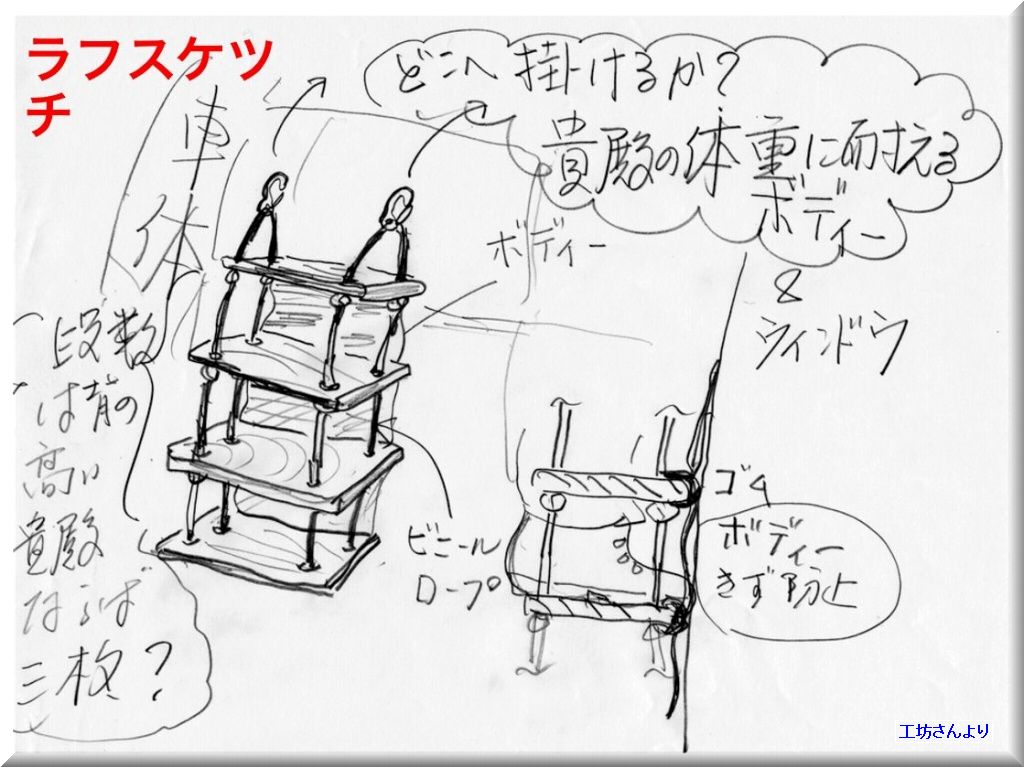 ラフスケツ
チ
どこへ掛けるか?
貴殿の体重に耐える
ボディー
&
ウィンドウ
車
体
ボディー
段数
は背の
高い
貴殿
ならば
三枚?
ビニール
ロープ
ゴム
ボディー
きず防止
工坊さんより